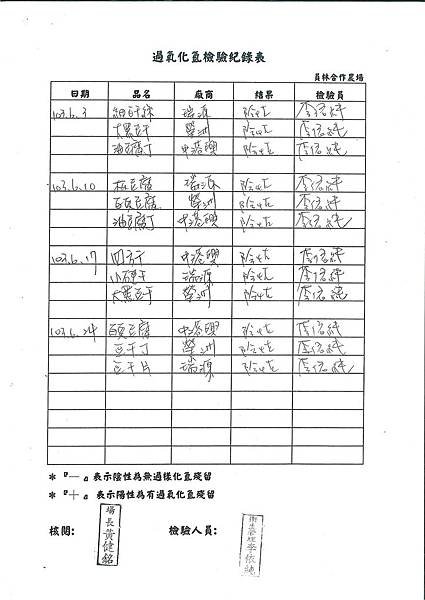 過氧化氫檢驗紀錄表
員林合作農場
日期 品名 廠商 結果 檢驗員
103.6.3 細豆干絲 瑞源 陰性 李依純
大黑豆干 榮洲 陰性 李依純
油豆腐丁 中港興 陰性 李依純
103.6.10 板豆腐 瑞源 陰性 李依純
百頁豆腐 榮洲 陰性 李依純
油豆腐丁 中港興 陰性 李依純
103.6.17 四分干 中港興 陰性 李依純
小豆干 瑞源 陰性 李依純
大黑豆干 榮洲 陰性 李依純
103.6.24 百頁豆腐 中港興 陰性 李依純
豆干丁 榮洲 陰性 李依純
豆干片 瑞源 陰性 李依純
* 『—』表示陰性為無過樣化氫殘留
* 『+』表示陽性為有過氧化氫殘留
核閱: 場長黃健銘 檢驗人員: 衛生管理李依純